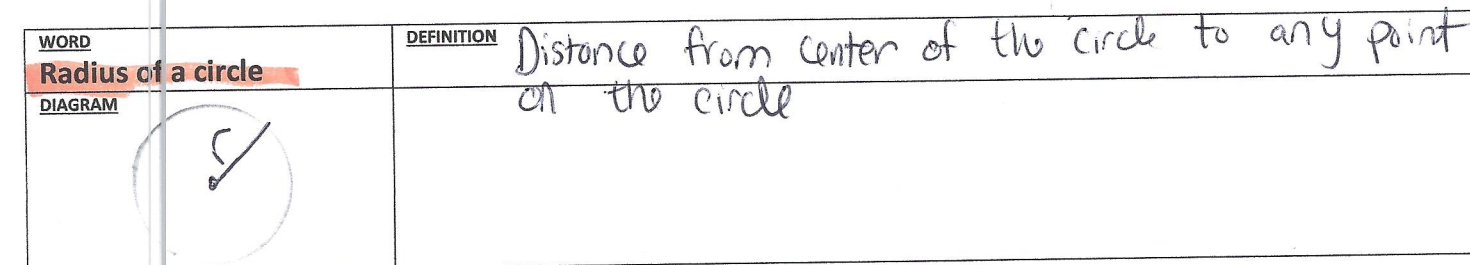 WORD
Radius of a circle
DEFINITION
Distance from center of the circle to any point
on the circle
DIAGRAM
r